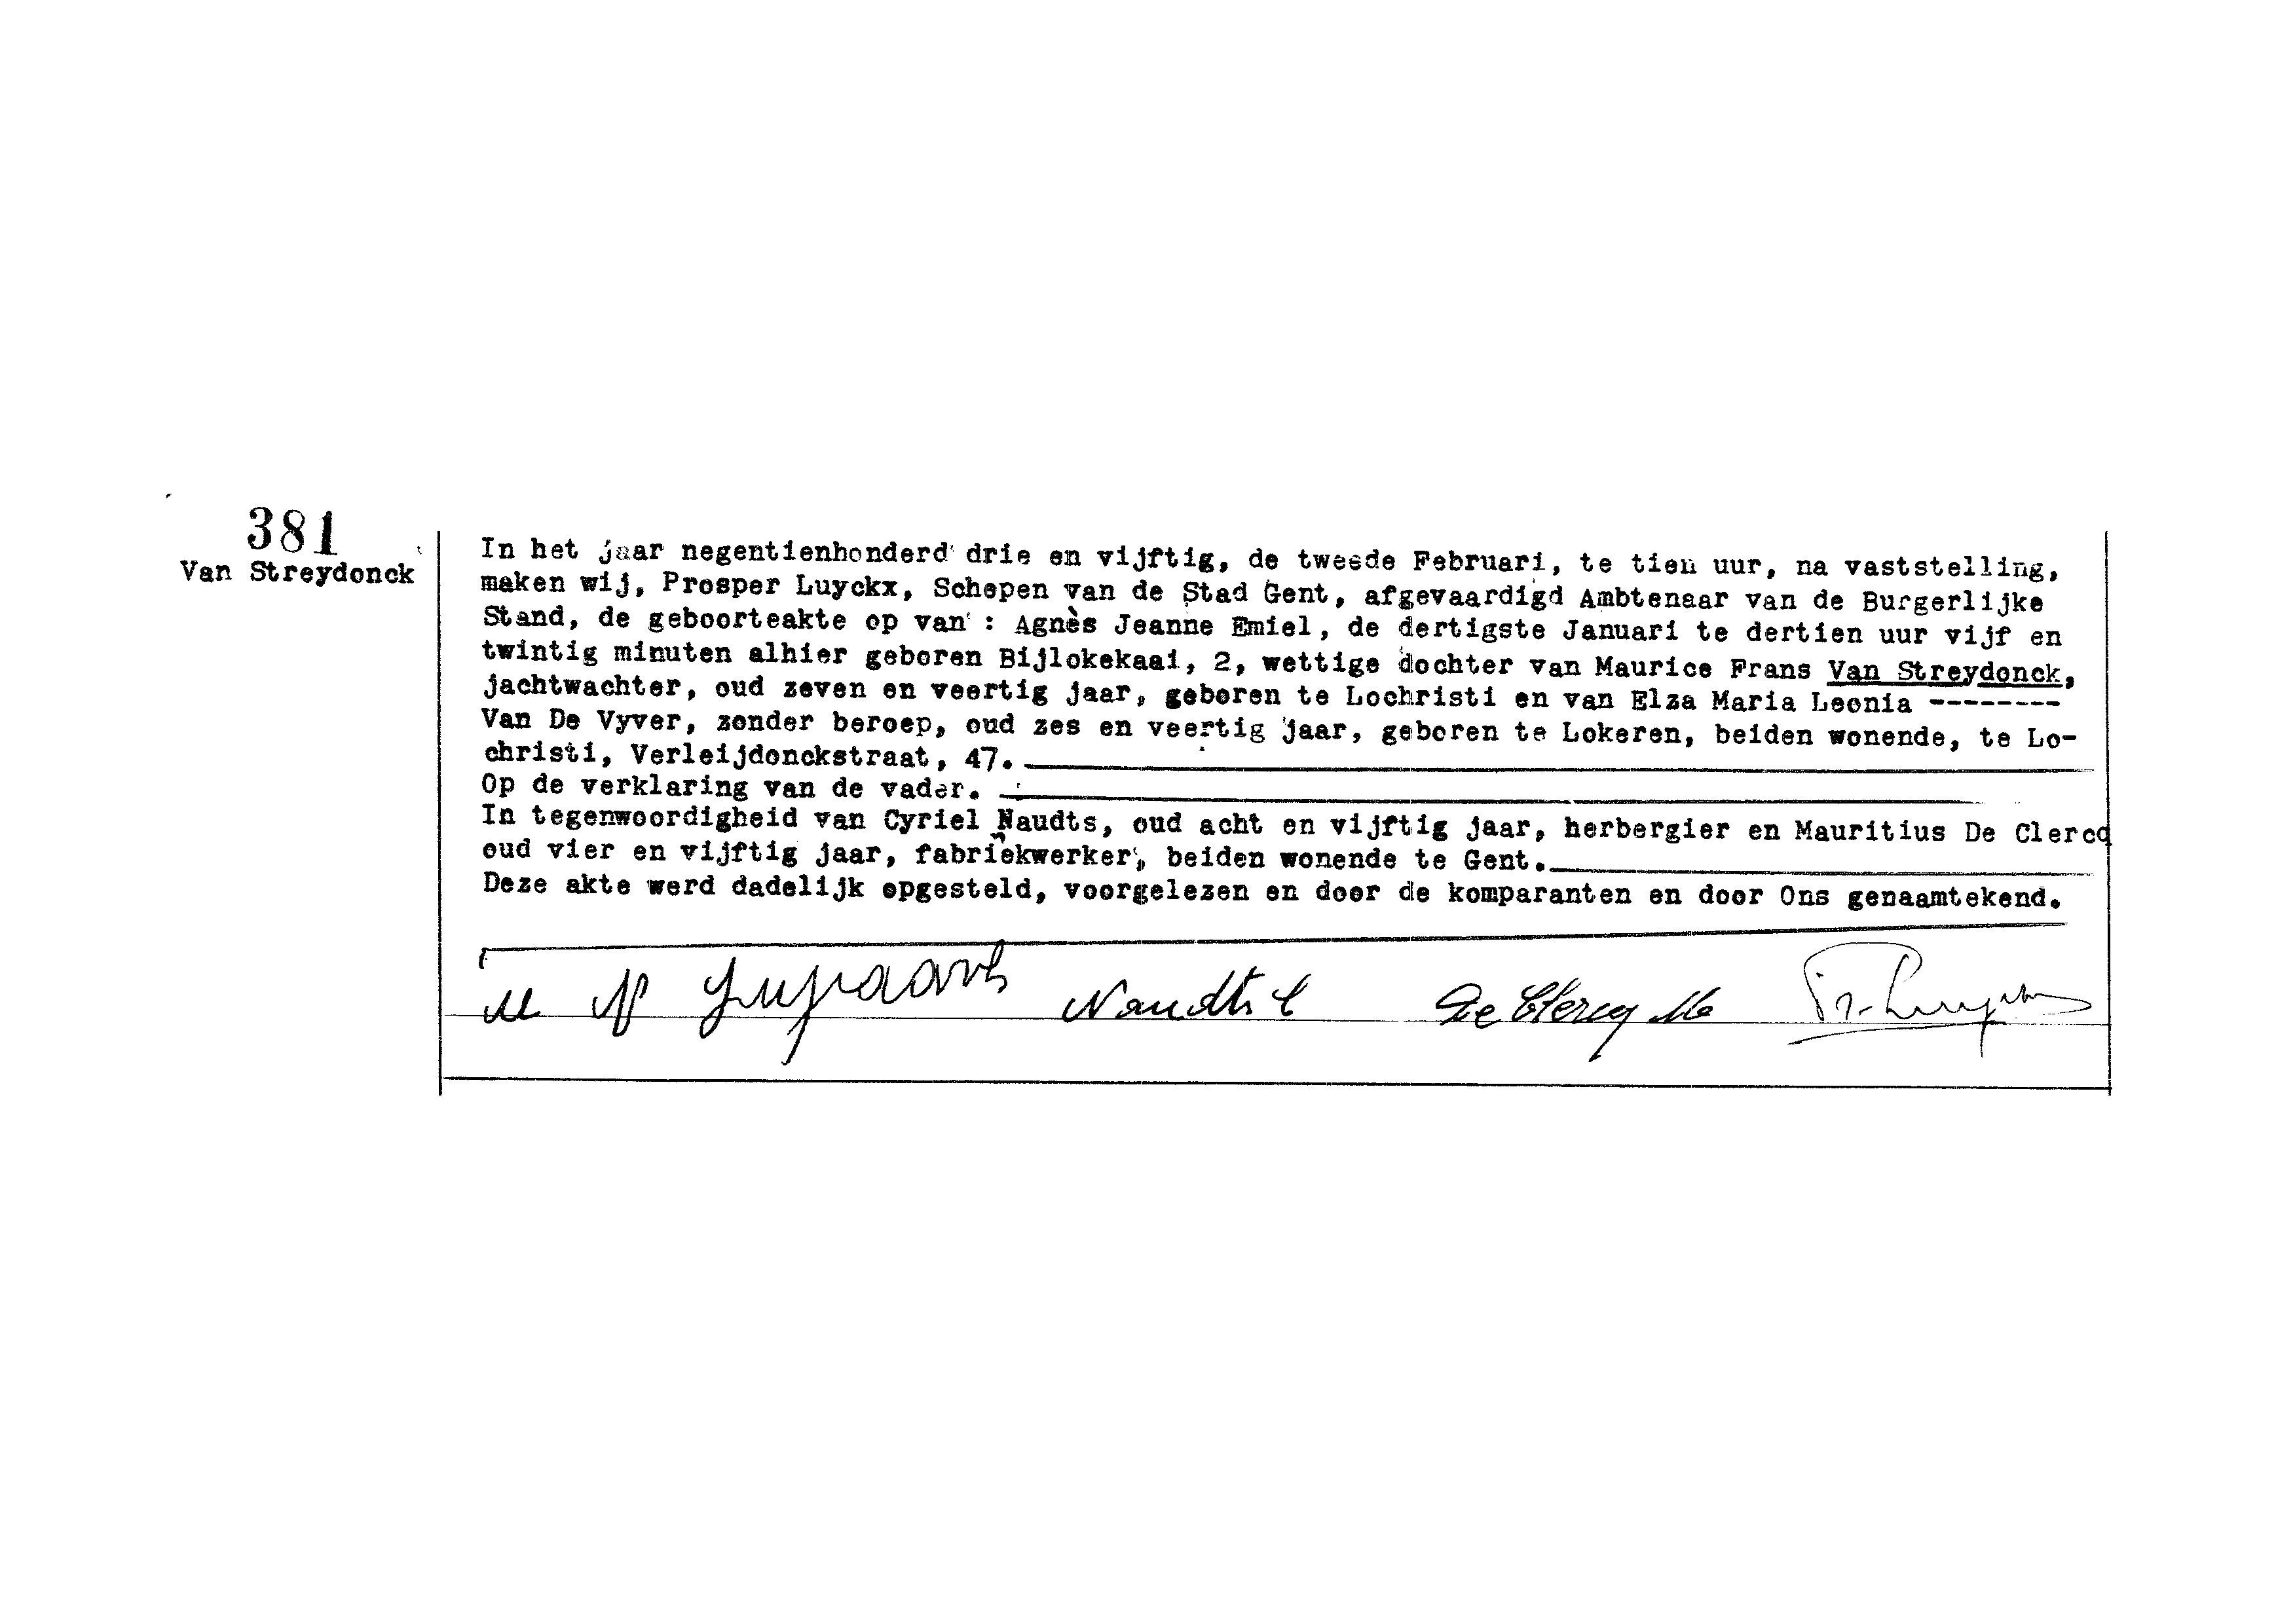 381
Van Streydonck
In het jaar negentienhonderd drie en vijftig, de tweede Februari, te tien uur, na vaststelling,
maken wij, Prosper Luyckx, Schepen van de Stad Gent, afgevaardigd Ambtenaar van de Burgerlijke
Stand, de geboorteakte op van : Agnès Jeanne Emiel, de dertigste Januari te dertien uur vijf en
twintig minuten alhier geboren Bijlokekaai, 2, wettige dochter van Maurice Frans Van Streydonck,
jachtwachter, oud zeven en veertig jaar, geboren te Lochristi en van Elza Maria Leonia --------
Van De Vyver, zonder beroep, oud zes en veertig jaar, geboren te Lokeren, beiden wonende, te Lo-
christi, Verleijdonckstraat, 47.
Op de verklaring van de vader.
In tegenwoordigheid van Cyriel Naudts, oud acht en vijftig jaar, herbergier en Mauritius De Clercq
oud vier en vijftig jaar, fabriekwerker, beiden wonende te Gent.
Deze akte werd dadelijk opgesteld, voorgelezen en door de komparanten en door Ons genaamtekend.
Naudts C De Clercq M